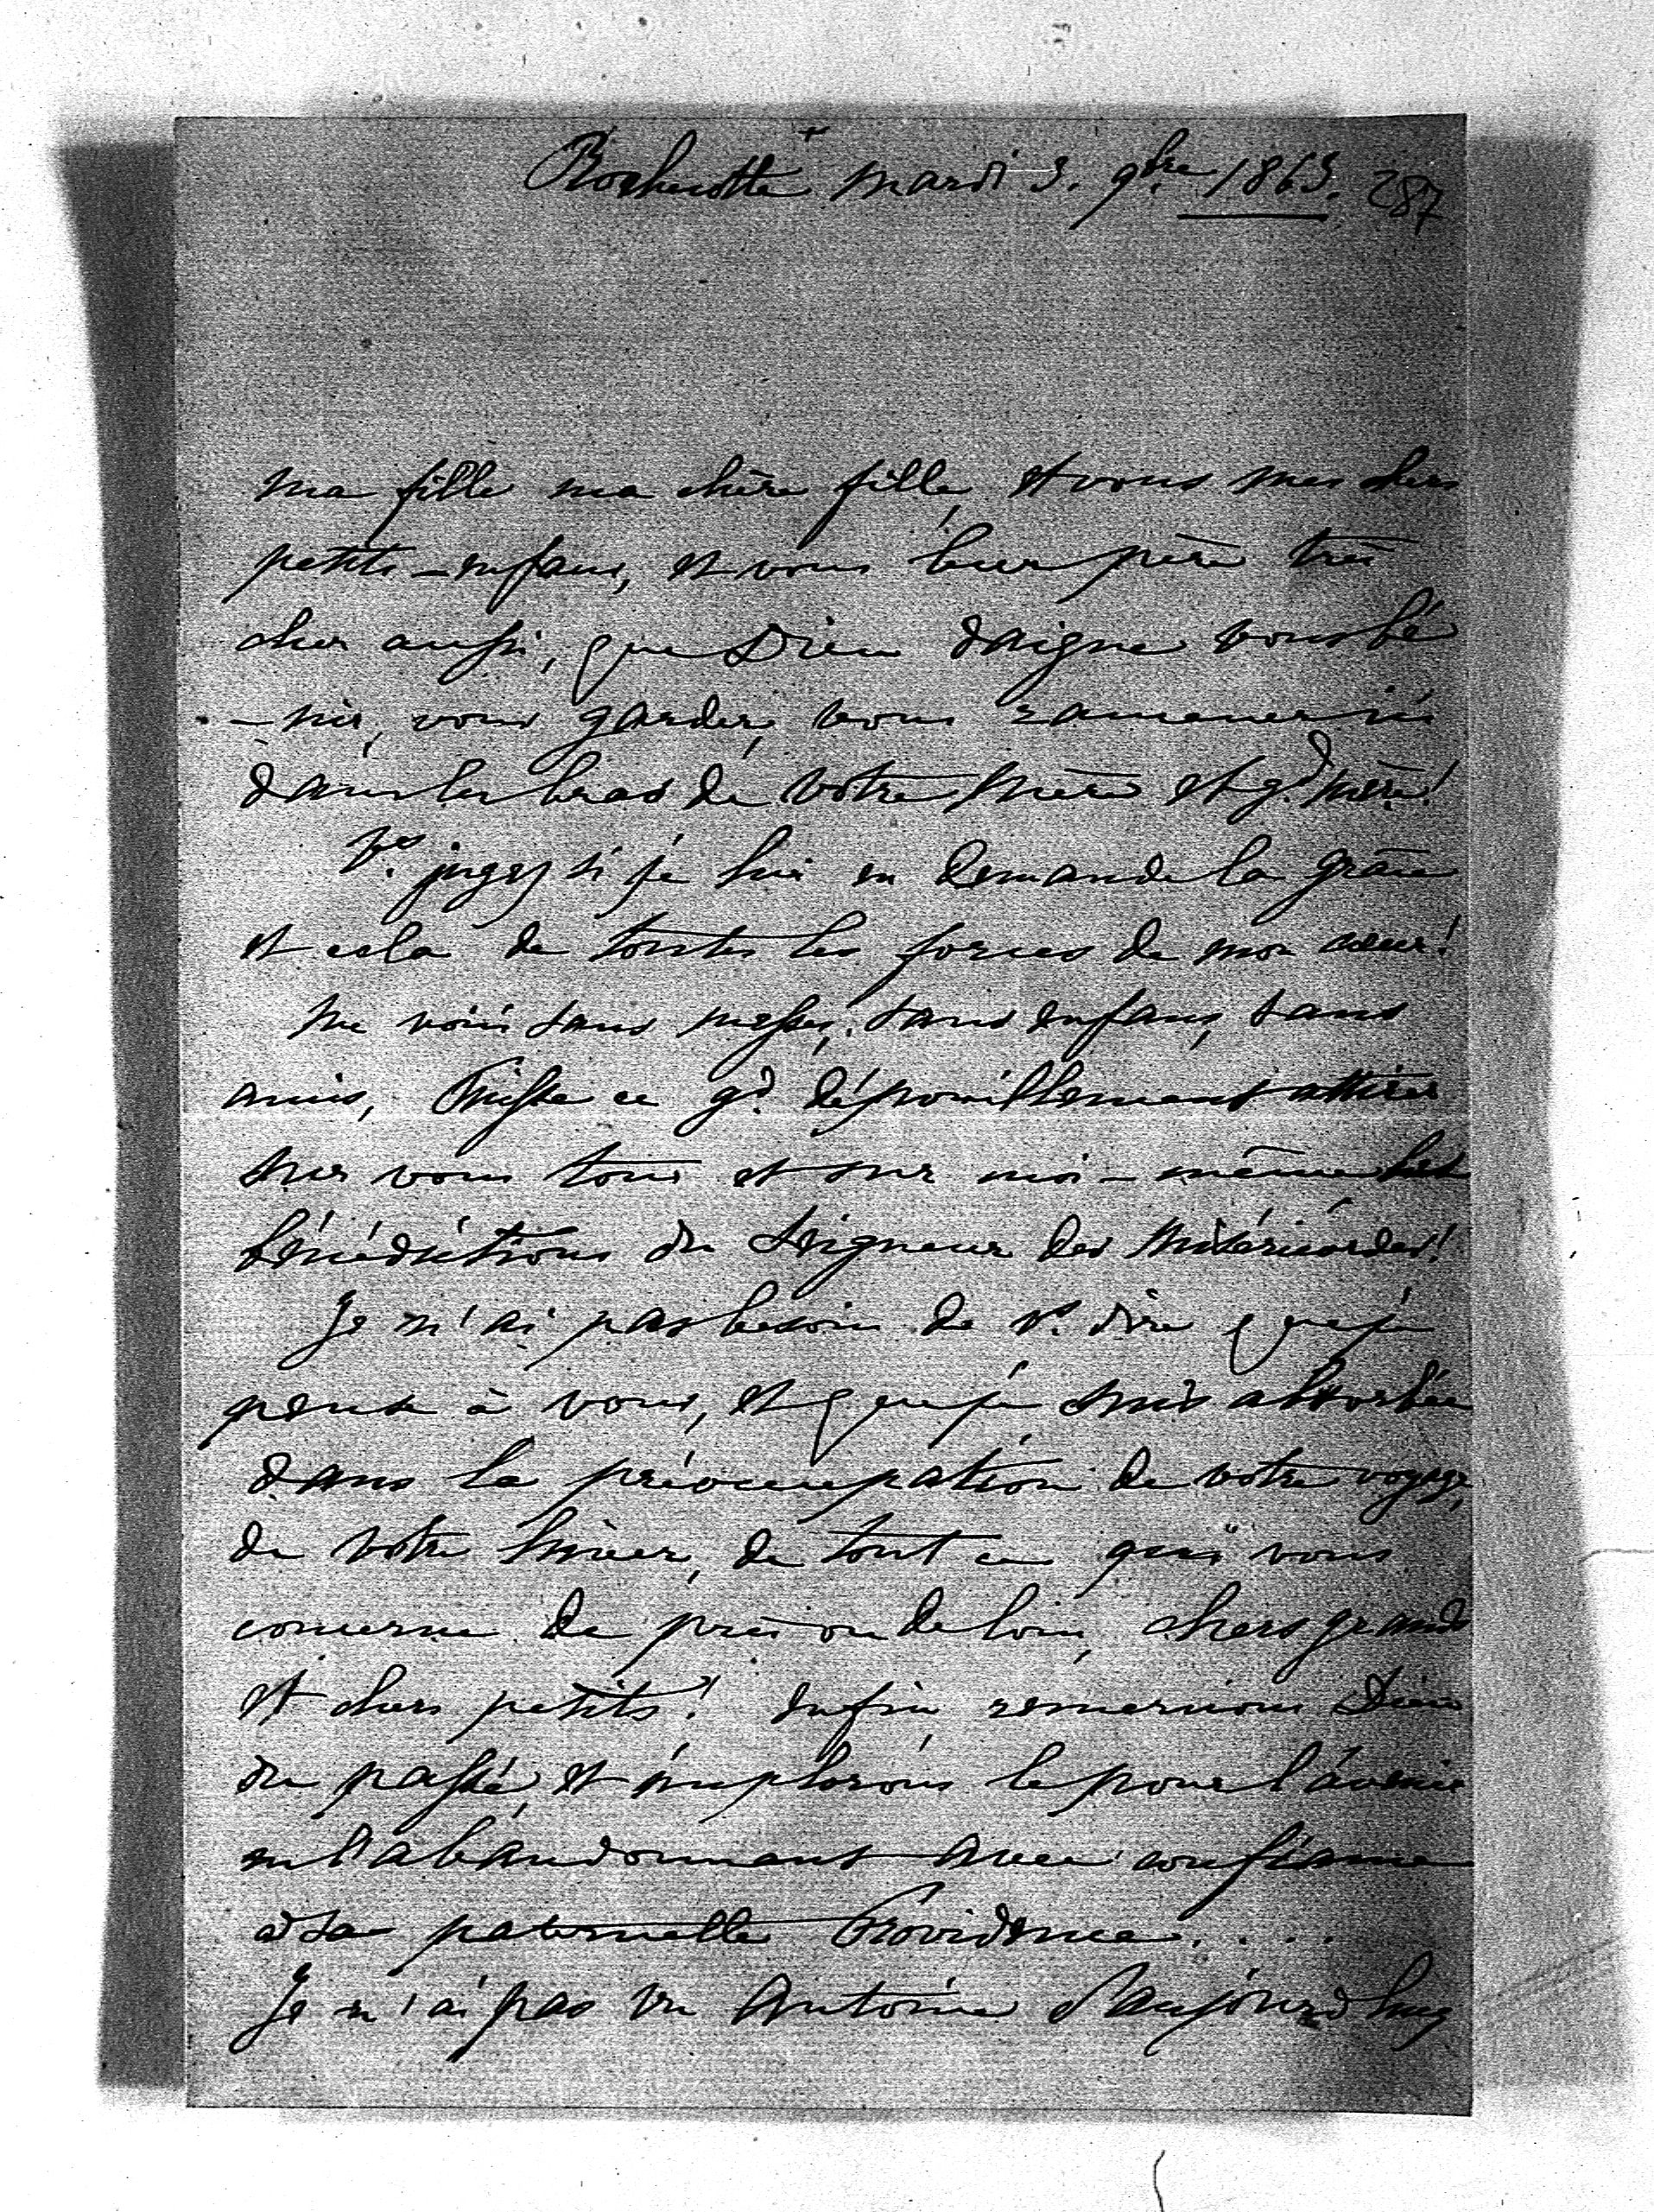 +
Rochecotte mardi 3. 9bre 1863. 287
ma fille ma chère fille, et vous mes chers
petits-enfans, et vous leur père très
cher aussi, que Dieu daigne vous bé
-nir, vous garder, vous ramener ici
dans les bras de votre mère et gd mère!
Vs jugez si je lui en demande la grâce
et cela de toutes les forces de mon cœur!
me voici sans messes, sans enfans, sans
amis, Puisse ce gd dépouillement attirer
sur vous tous et sur moi-même les
bénédictions du Seigneur des Miséricordes!
Je n'ai pas besoin de Vs dire que je
pense à vous, et que je suis absorbée
dans la préoccupation de votre voyage,
de votre hiver, de tout ce qui vous
concerne de près ou de loin, chers grands
et chers petits! enfin remercions Dieu
du passé, et implorons le pour l'avenir
en l'abandonnant avec confiance
à sa paternelle Providence....
Je n'ai pas vu Antoine d'aujourd'huy